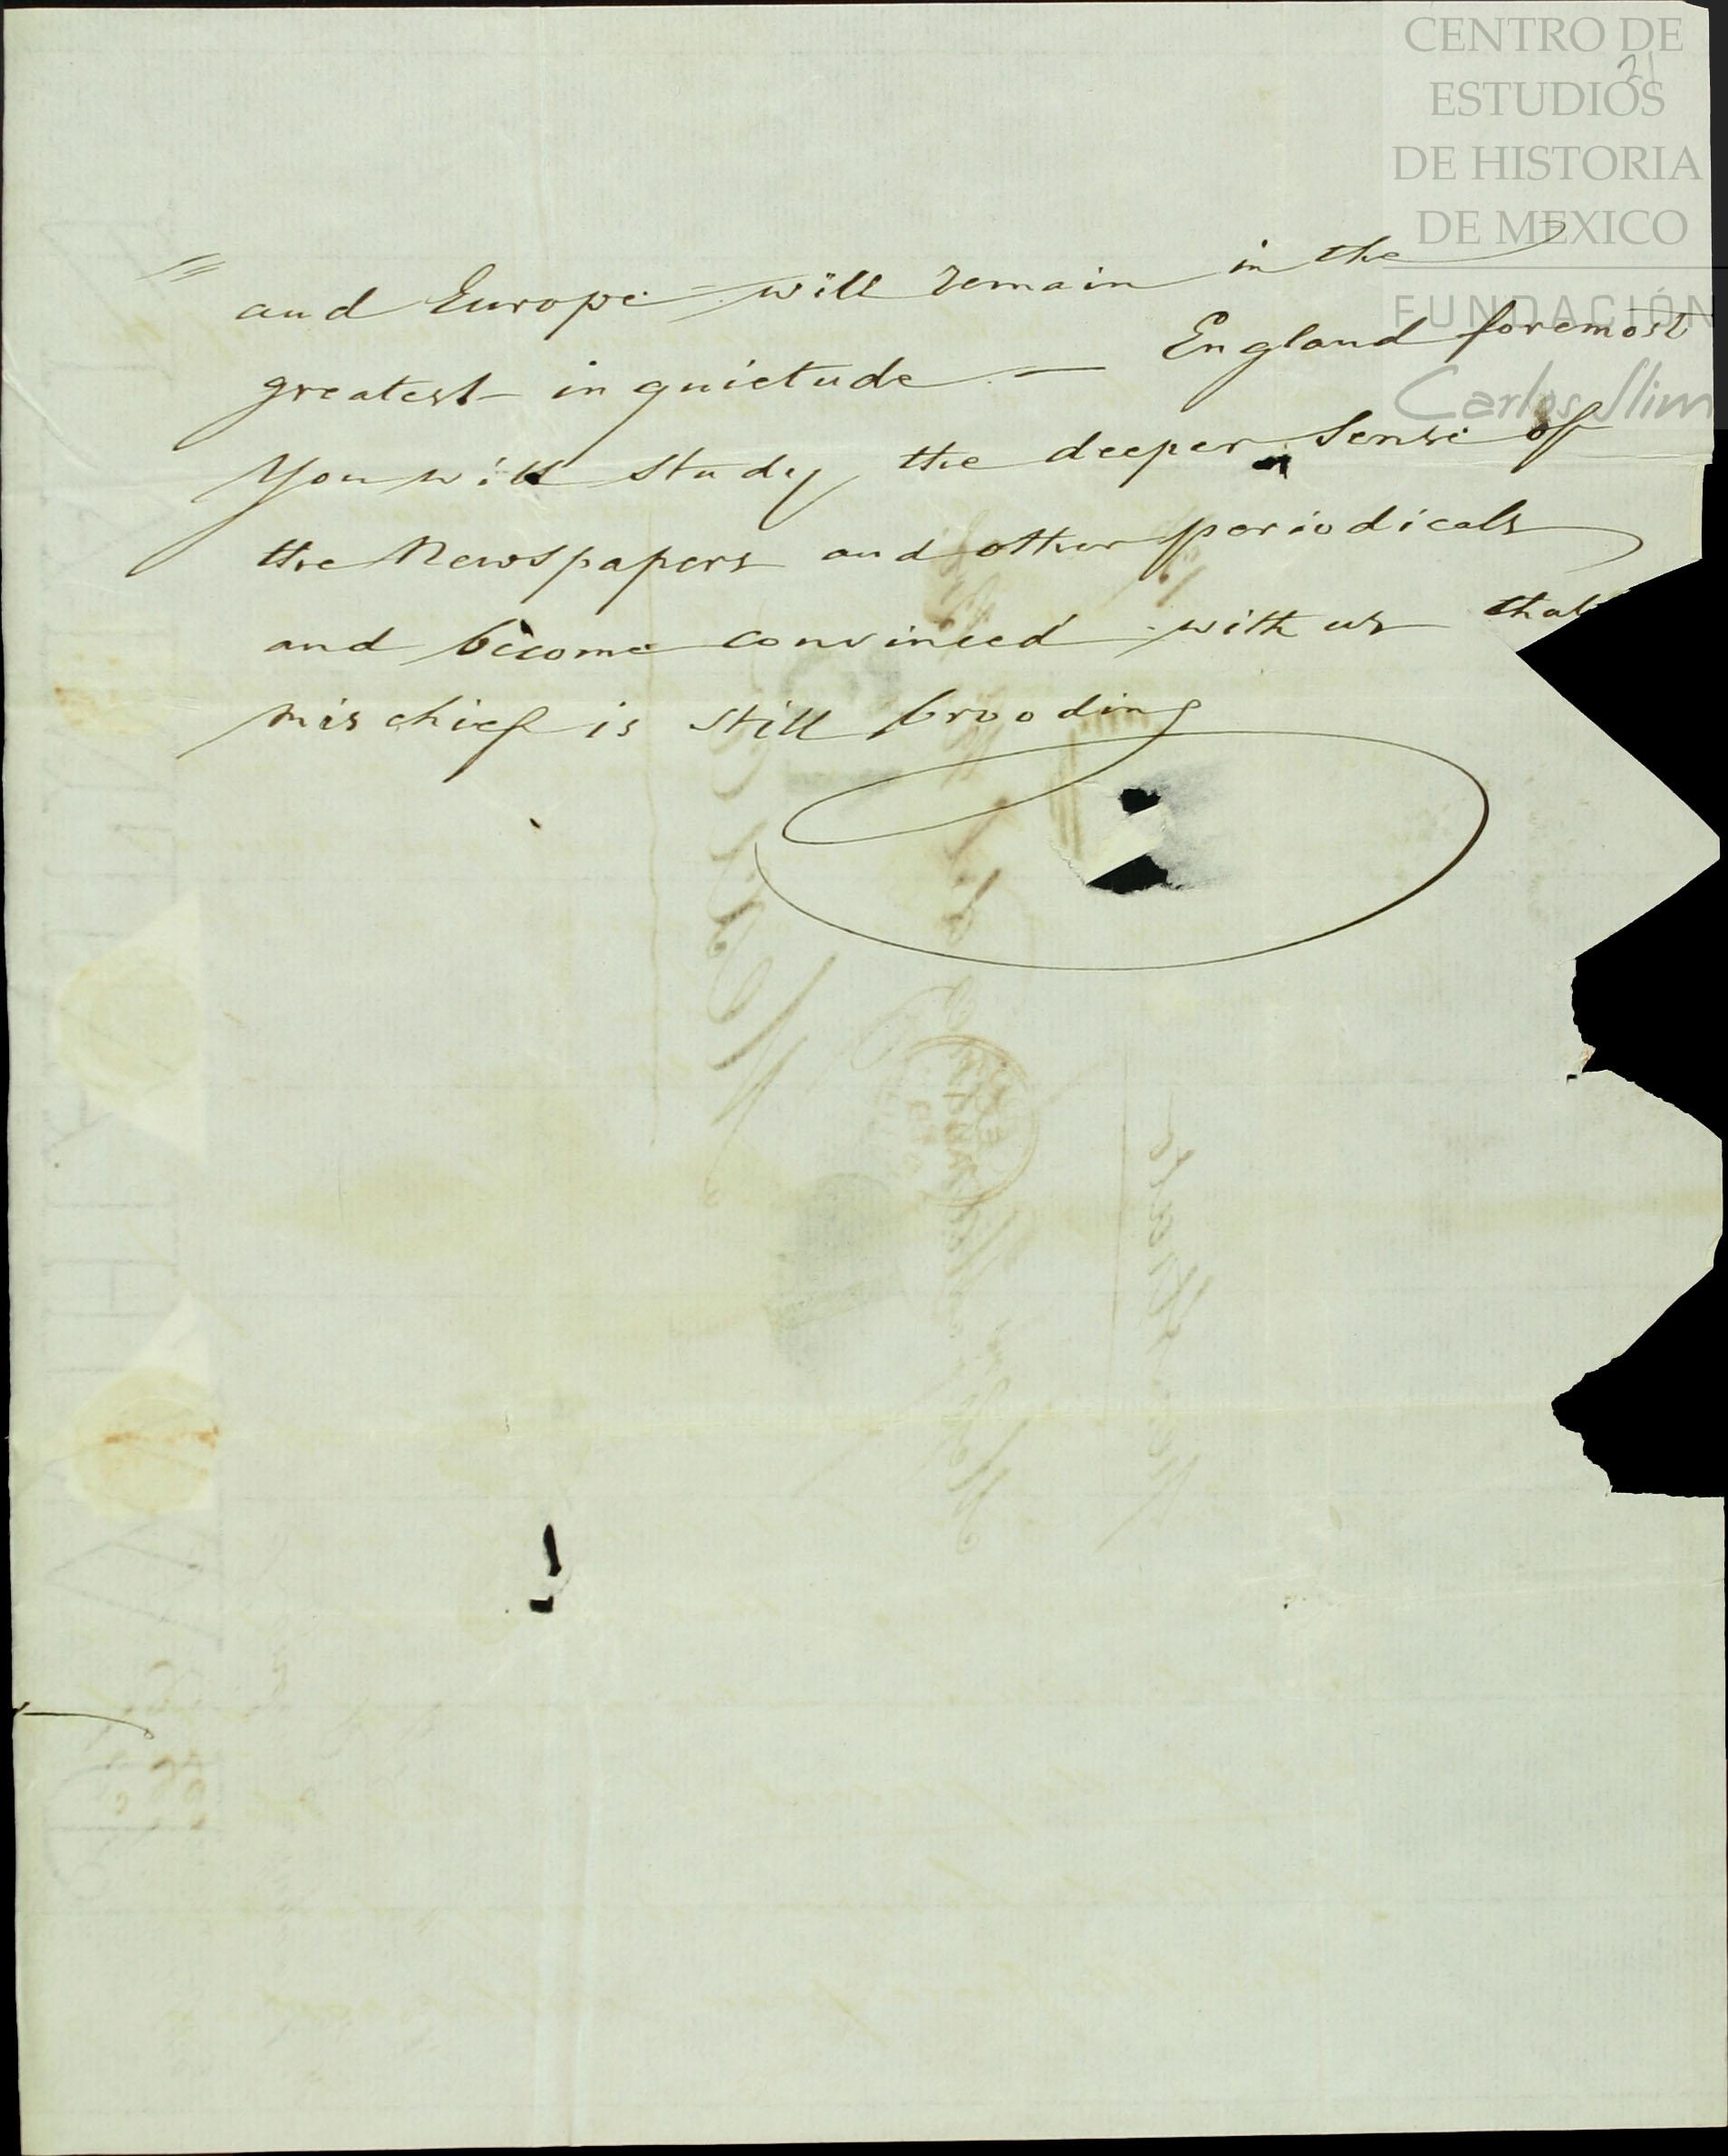 CENTRO DE
ESTUDIOS
DE HISTORIA
DE MEXICO
FUNDACIÓN
Carlos Slim
21
" and Europe will remain in the
greatest inquietude — England foremost
You will study the deeper Sense of
the Newspapers and other periodicals
and become convinced with us that
mischief is still brooding